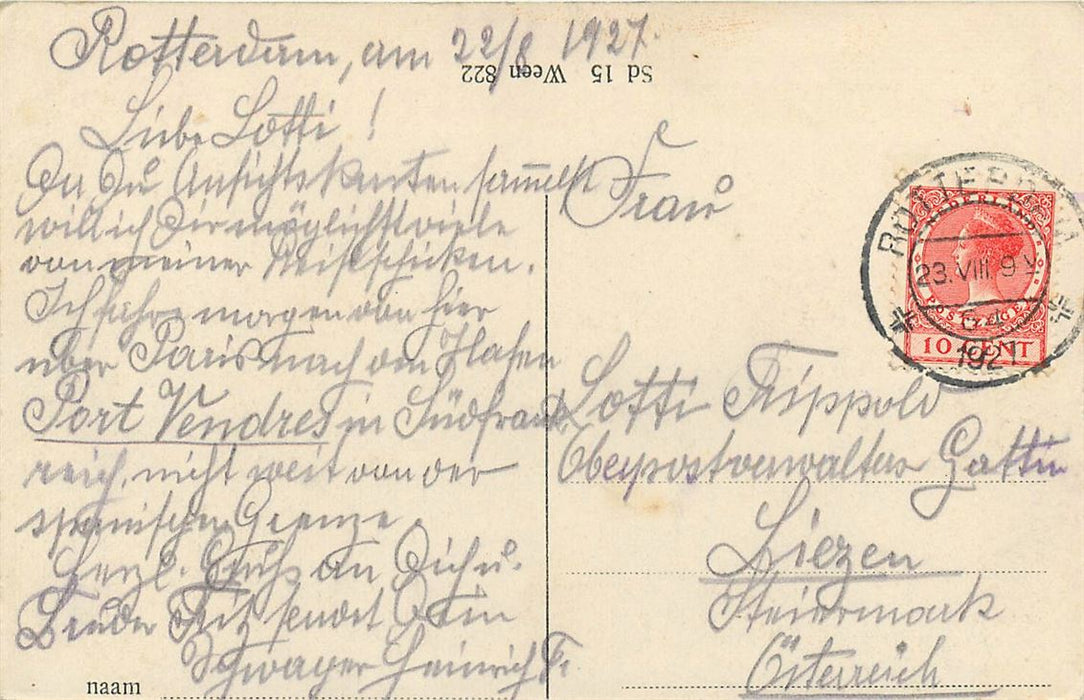 Rotterdam, am 22/8 1927.
Sd 15 Ween 822
Liebe Lotti!
Da Du Ansichtskarten sammelst
will ich Dir möglichst viele
von meiner Reise schicken.
Ich fahre morgen von hier
über Paris nach dem Hafen
Port Vendres in Südfrank
reich, nicht weit von der
spanischen Grenze.
Herzl. Gruß an Dich u.
Bruder Fritz sendet Dein
Schwager Heinrich F.
naam
Frau
Lotti Rippold
Oberpostverwalters Gattin
Liezen
Steiermark
Österreich
ROTTERDAM
23.VIII. 9
1927
NEDERLAND
POSTZEGEL
10 CENT